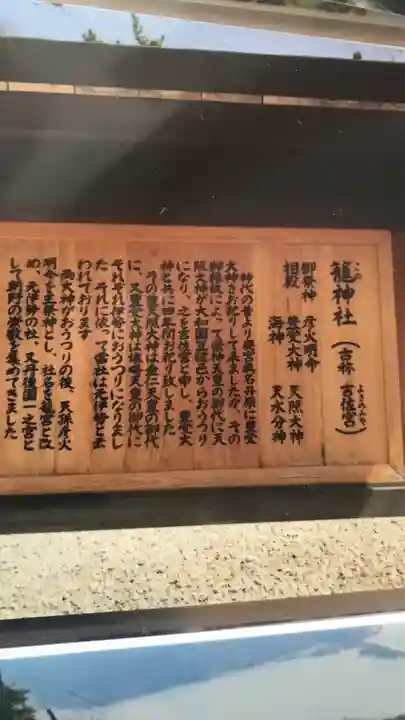 この
籠神社(古称 吉佐宮)
よさのみや
御祭神 彦火明命
相殿 豊受大神 天照大神
海神 天水分神
神代の昔より奥宮真名井原に豊受
大神をお祀りして来ましたが、その
御縁故によって崇神天皇の御代に天
照大神が大和国笠縫邑からおうつり
になり、之を吉佐宮と申し、豊受大
神と共に四年間お祀り致しました
その後天照大神は垂仁天皇の御代
に、又豊受大神は雄略天皇の御代に
それぞれ伊勢におうつりになりまし
た それに依って當社は元伊勢と云
われております
両大神がおうつりの後、天孫彦火
明命を主祭神とし、社名を籠宮と改
め、元伊勢の社、又丹後国一之宮と
して朝野の崇敬を集めてきました